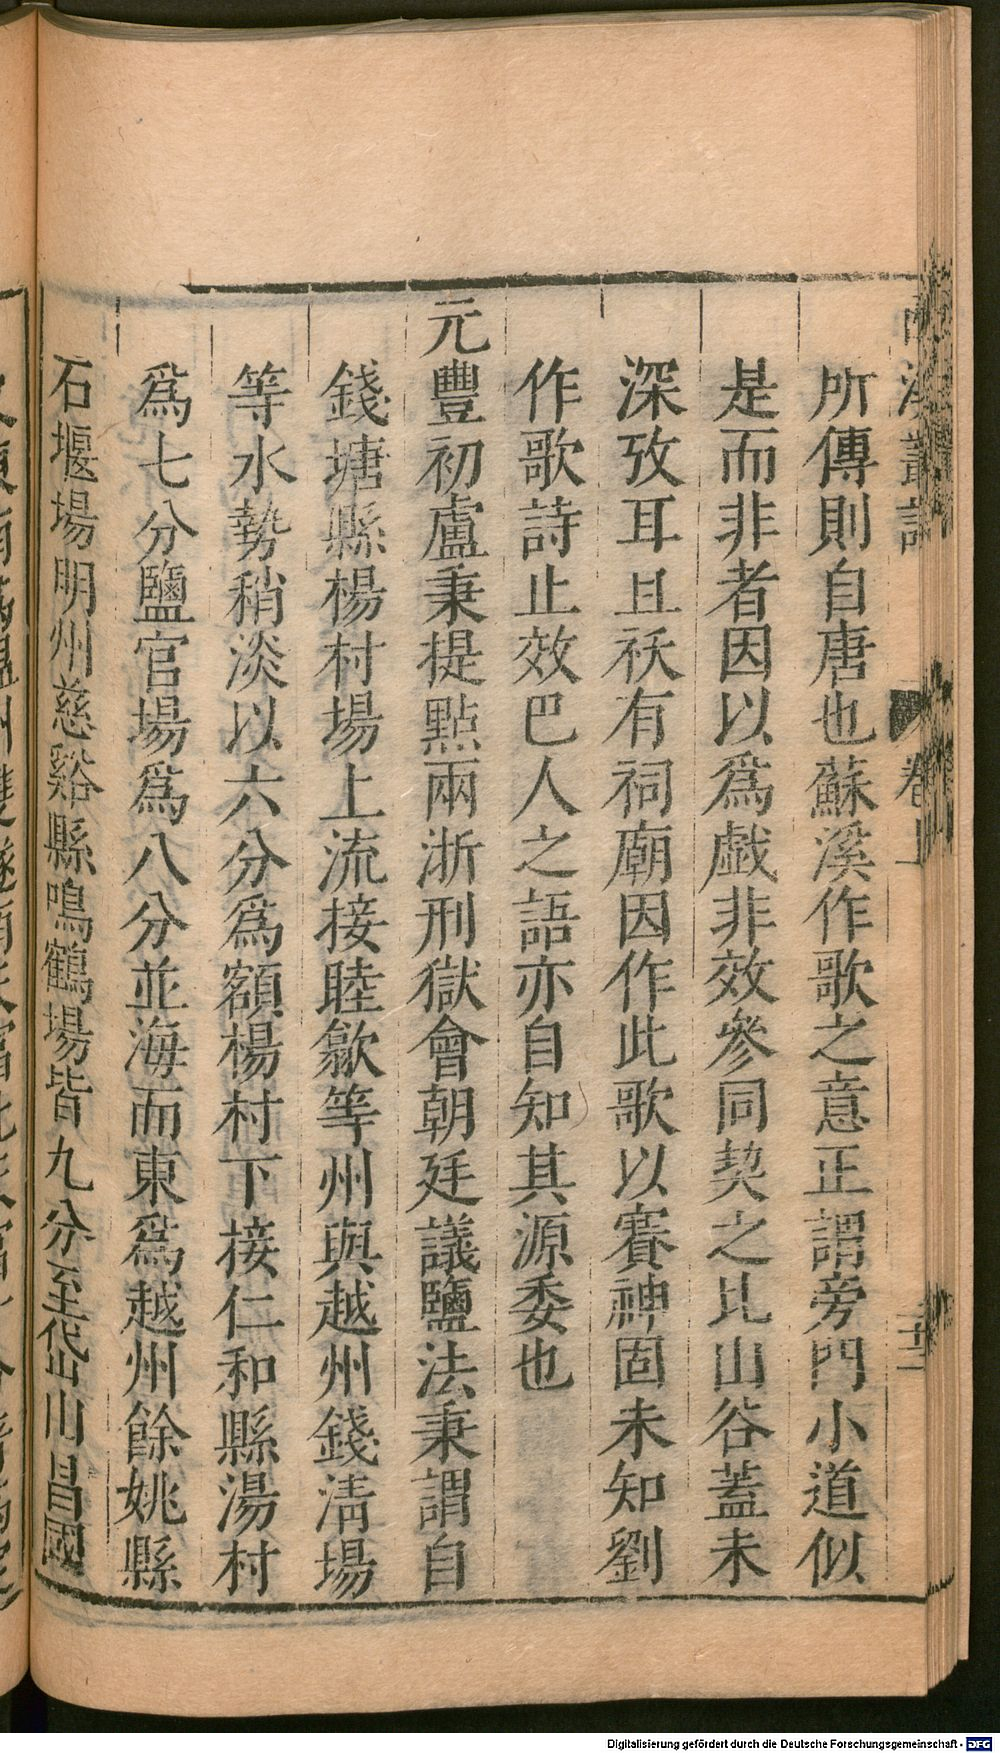 所傳則自唐也蘇溪作歌之意正謂旁門小道似
是而非者因以爲戯非效參同契之比山谷蓋未
深攷耳且祅有祠廟因作此歌以賽神固未知劉
作歌詩止效巴人之語亦自知其源委也
元豐初盧秉提點兩浙刑獄會朝廷議鹽法秉謂自
錢塘縣楊村場上流接睦歙等州與越州錢淸場
等水勢稍淡以六分爲額楊村下接仁和縣湯村
爲七分鹽官場爲八分並海而東爲越州餘姚縣
石堰場明州慈谿縣鳴鶴場皆九分至岱山昌國
Digitalisierung gefördert durch die Deutsche Forschungsgemeinschaft - DFG